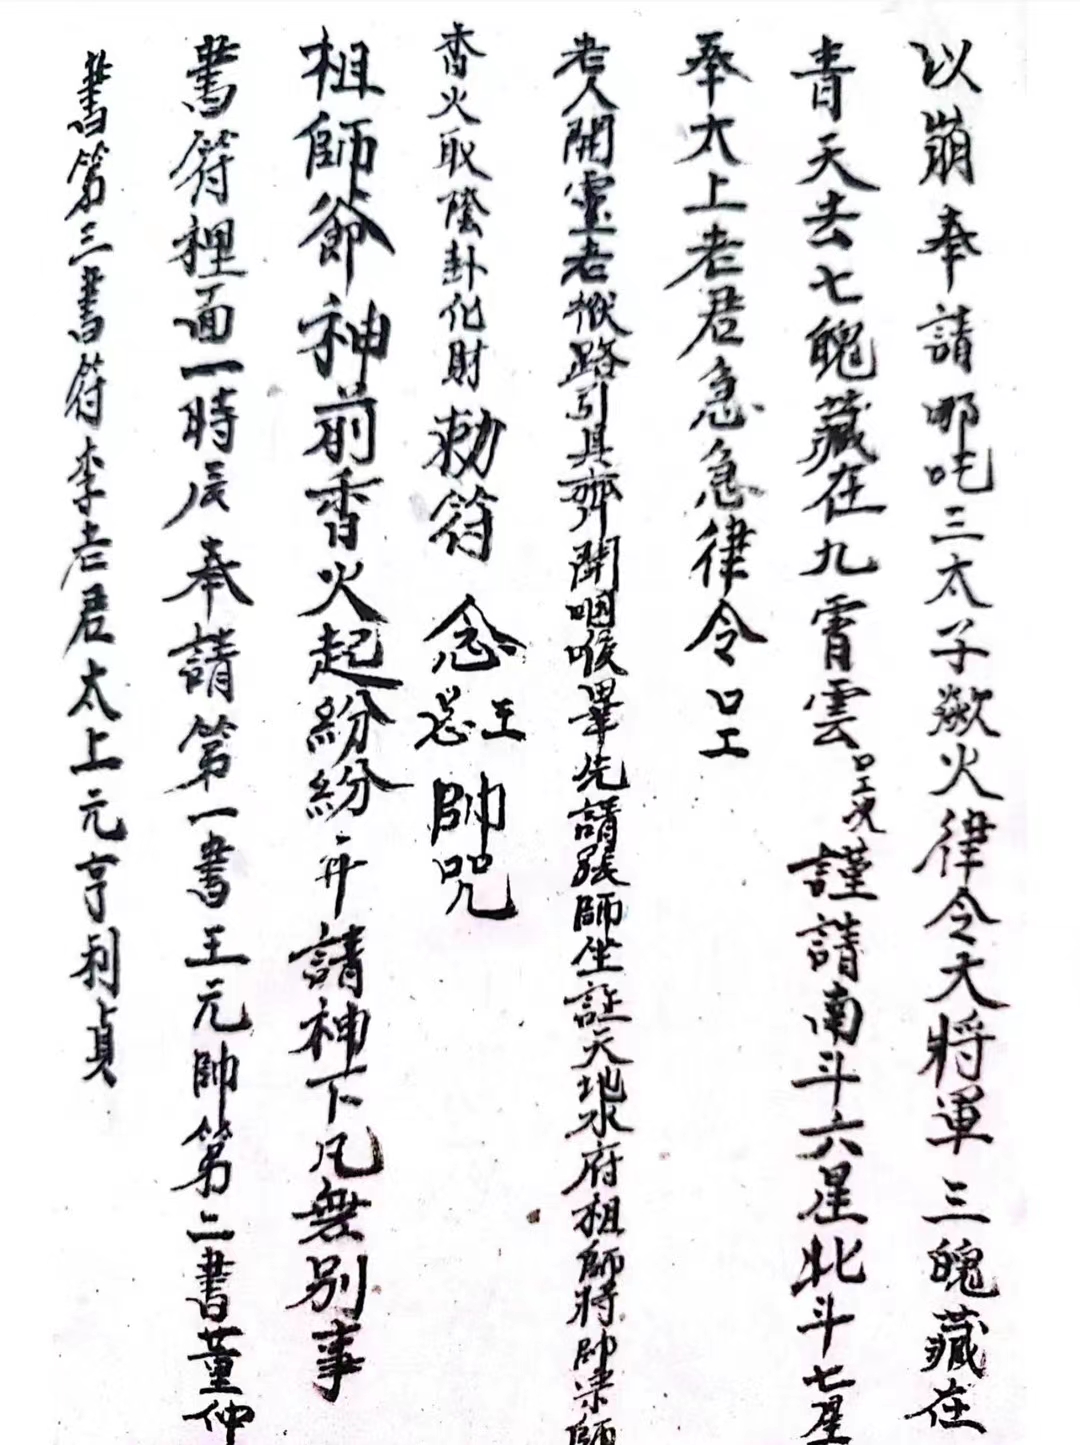 以崩奉請哪吒三太子欻火律令大將軍三魄藏在
青天去七魄藏在九霄雲口工兇謹請南斗六星北斗七星
奉太上老君急急律令口工
老人開靈老猴路引具齊開咽喉畢先請張師坐証天地水府祖師將帥眾師
香火取陰卦化財敕符 念王惡帥咒
祖師爺神前香火起紛紛弟請神下凡無別事
書符裡面一時辰奉請第一書王元帥第二書董仲
書第三書符李老君太上元亨利貞